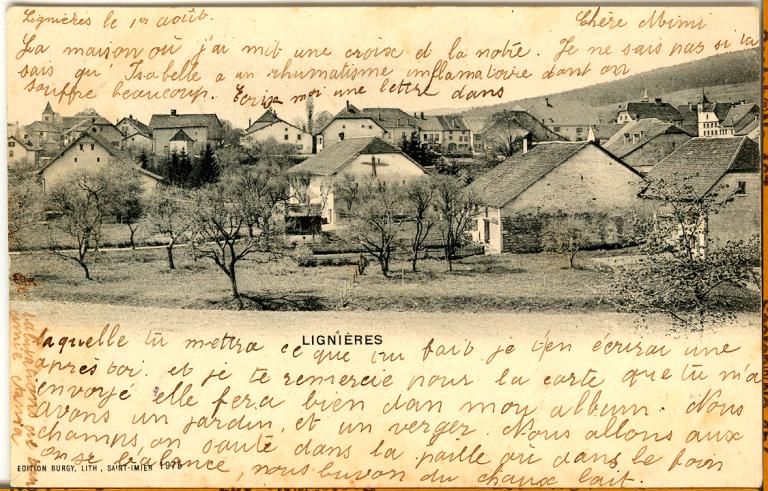 Lignières le 1er août.
Chère Mimi
La maison où j'ai mit une croix et la notre. Je ne sais pas si tu
sais qu'Isabelle a un rhumatisme inflamatoire dont on
souffre beaucoup. Ecrise moi une lettre dans
LIGNIÈRES
laquelle tu mettra ce que tu fait je t'en écrirai une
après toi. et je te remercie pour la carte que tu m'a
envoyé elle fera bien dan mon album. Nous
avons un jardin, et un verger. Nous allons aux
champs, on saute dans la paille ou dans le foin
on se balance, nous buvon du chaux lait.
EDITION BURGY, LITH., SAINT-IMIER 1975